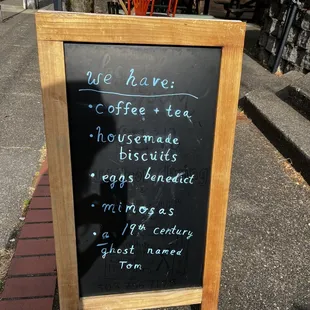 we have:
• coffee + tea
• housemade
biscuits
• eggs benedict
• mimosas
• a 19th century
ghost named
Tom